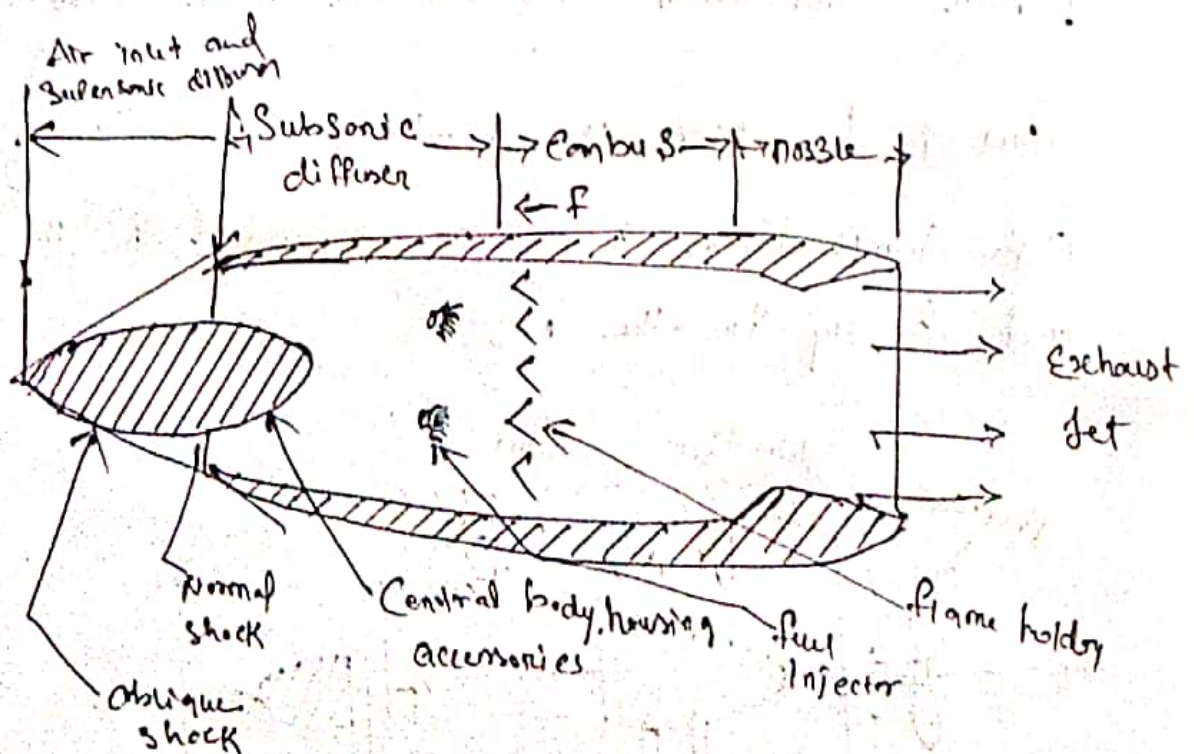 Air inlet and
Supersonic diffuser
Subsonic
diffuser
Combus
nozzle
f
Exhaust
Jet
Normal
shock
Central body, housing
accessories
fuel
Injector
flame holder
Oblique
shock